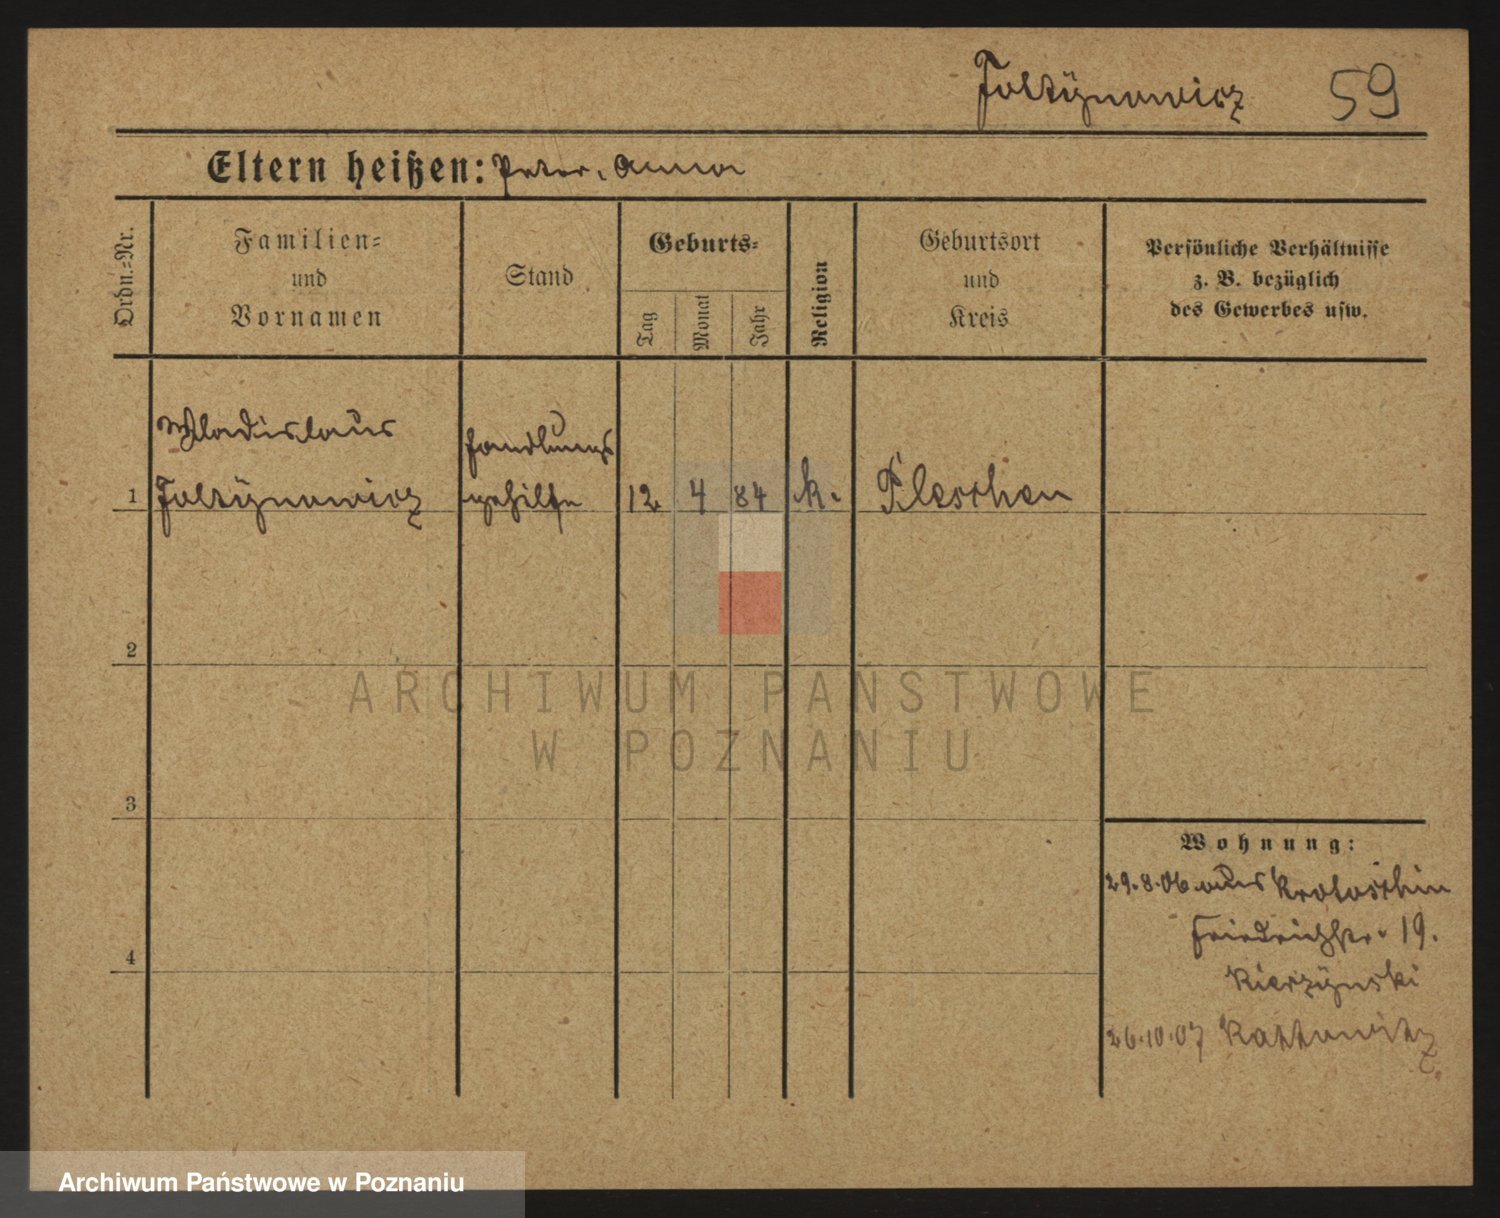 Foltynowicz 59
Eltern heißen: Peter, Anna
Ordn.-Nr.
Familien-
und
Vornamen
Stand
Geburts-
Tag
Monat
Jahr
Religion
Geburtsort
und
Kreis
Persönliche Verhältnisse
z. B. bezüglich
des Gewerbes usw.
Wladislaus
Handlungs
1 Foltynowicz gehilfe 12 4 84 k. Pleschen
2
ARCHIWUM PAŃSTWOWE
W POZNANIU
3
Wohnung:
29.8.06 aus Krotoschin
Friedrichstr. 19.
4
Kierzynski
26.10.07 Kattowitz
Archiwum Państwowe w Poznaniu